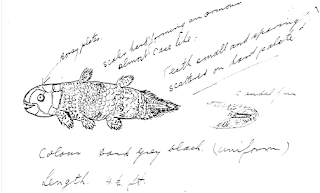 bony plates.
scales hard forming an armour
almost case like.
Teeth small and sparing
scattered on hard palate
Colour hard grey black (uniform)
Length. 4½ ft.